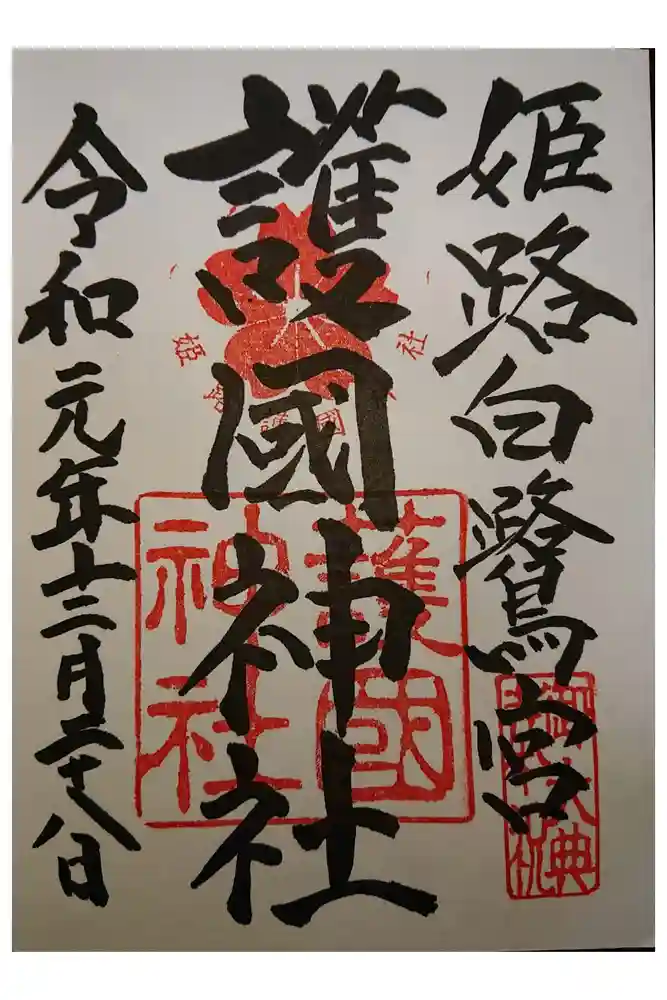 姫路白鷺宮
護國神社
令和元年十二月二十八日
護國
神社
姫路護國神社
御大典
奉祝